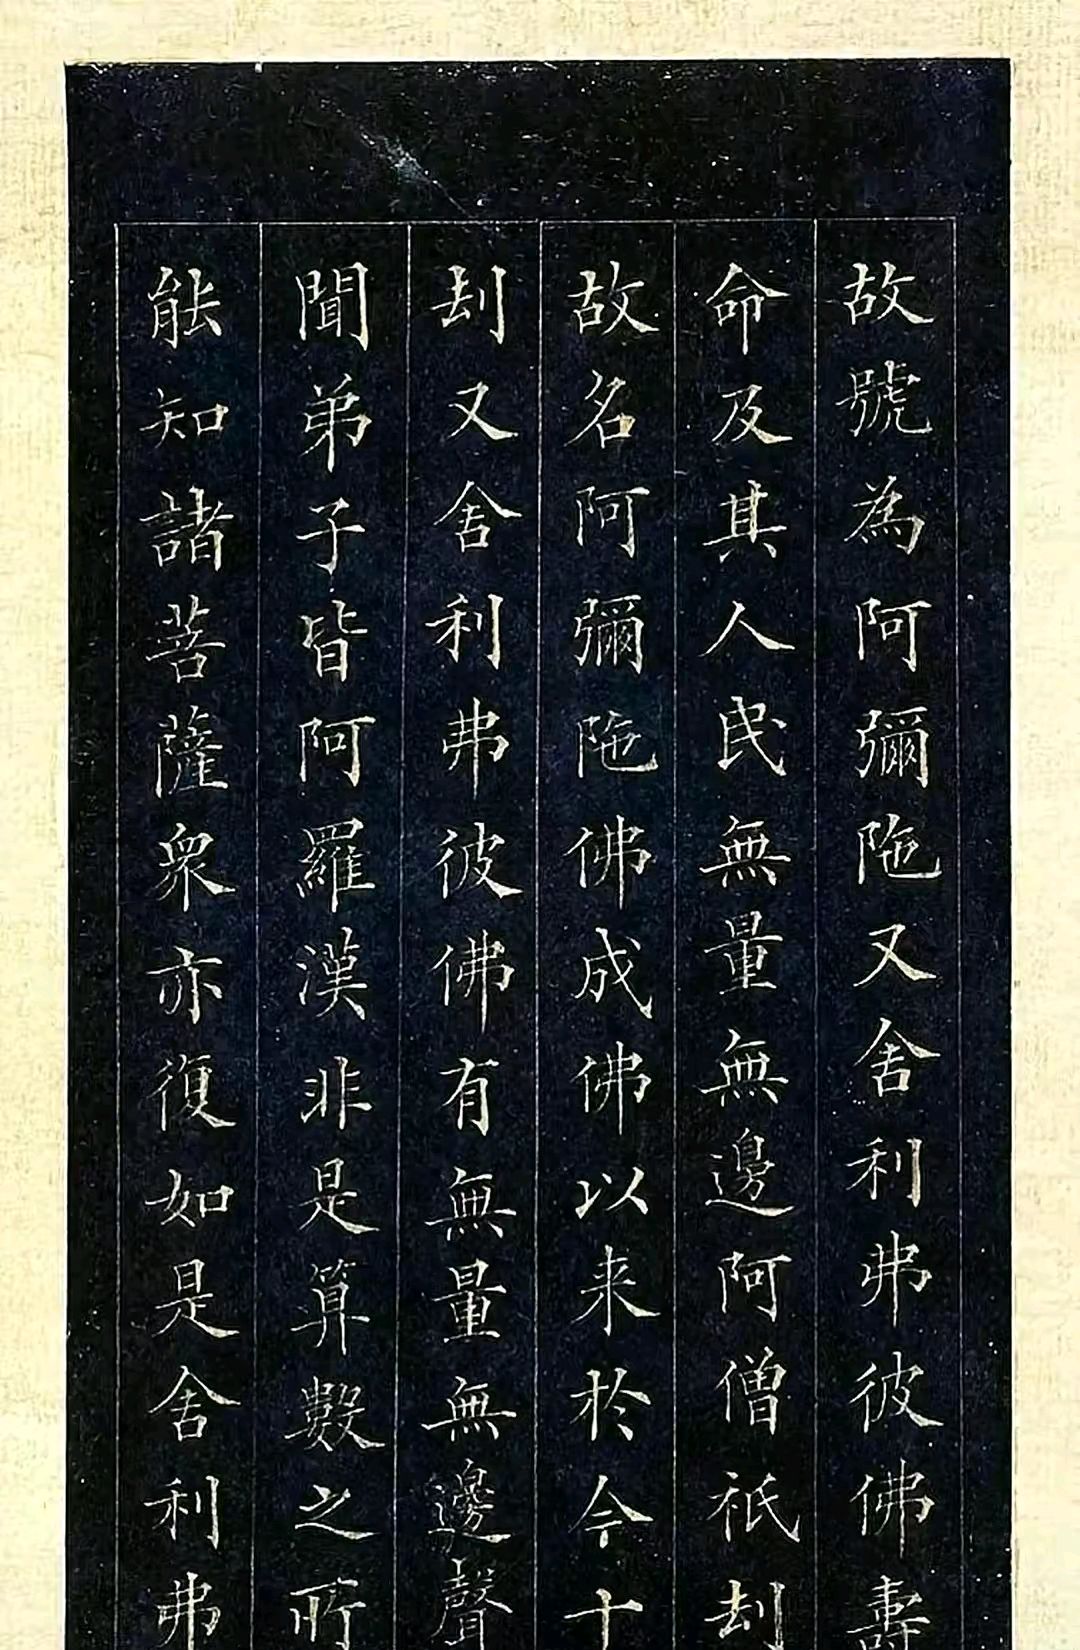 故號為阿彌陁又舍利弗彼佛壽
命及其人民無量無邊阿僧祇刦
故名阿彌陁佛成佛以来於今十
刦又舍利弗彼佛有無量無邊聲
聞弟子皆阿羅漢非是算數之所
能知諸菩薩衆亦復如是舍利弗